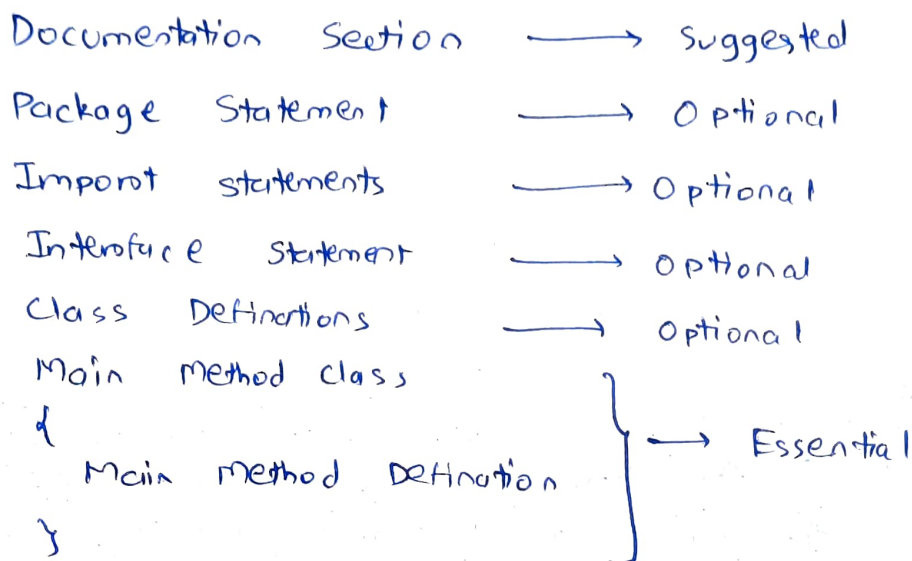 Documentation Section → Suggested
Package Statement → Optional
Imporot statements → Optional
Interoface Statement → Optional
Class Definations → Optional
Main method class
{
Main method Defination
} → Essential